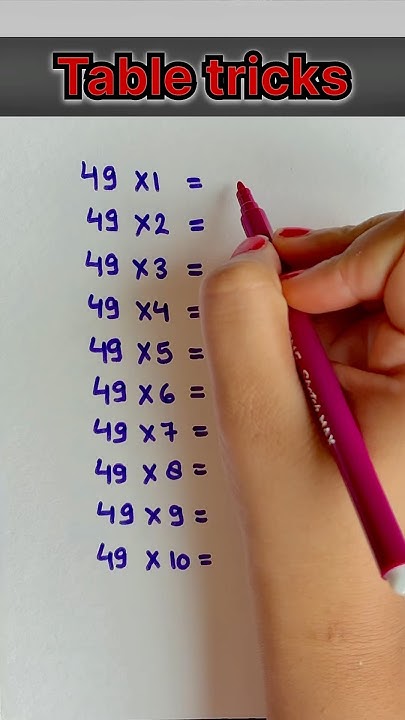 Table tricks
49 x1 =
49 x2 =
49 x3 =
49 x4 =
49 x5 =
49 x6 =
49 x7 =
49 x 8 =
49 x 9 =
49 x 10 =